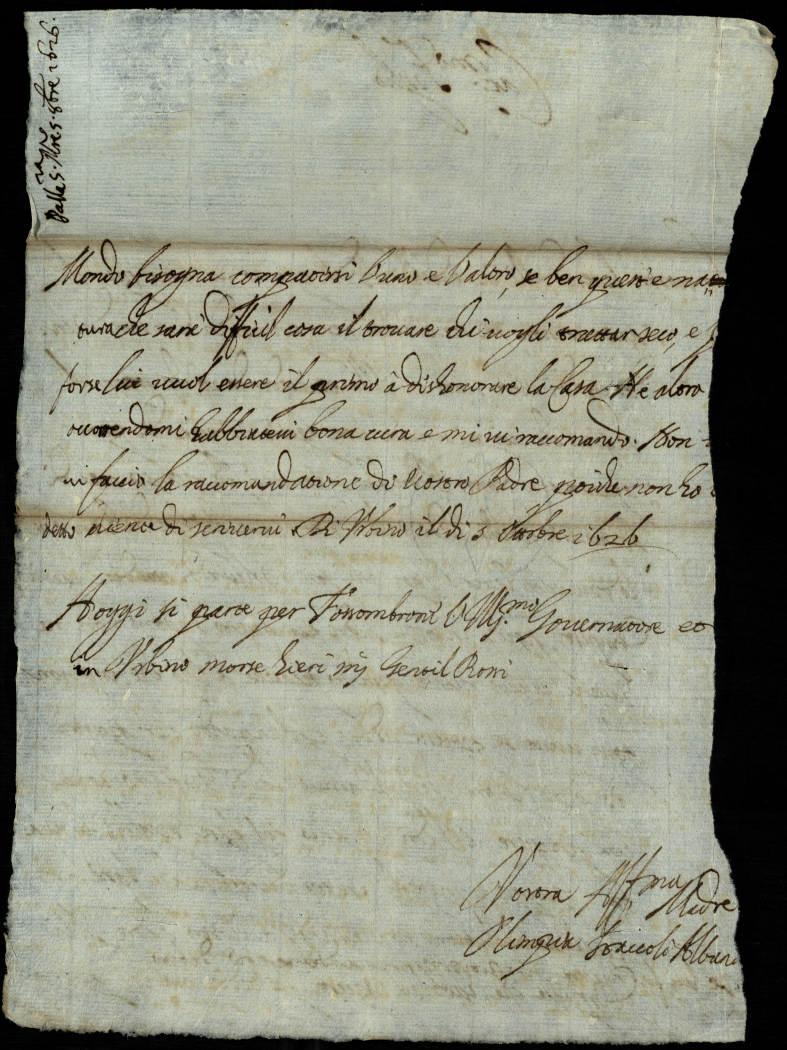 Dalla S. Mre 5. 8bre 1626.
Mondo bisogna compatirsi l'uno e l'altro, se ben questi e na
tura che sarà difficil cosa il trovare chi vogli trattar seco, e
forse lui vuol essere il primo à dishonorare la Casa Ne altro
occorrendomi habbiatevi bona cura e mi vi raccomando. Non
vi faccio la raccomandatione di Vostro Padre poiche non ho
detto niente di scrivervi Di Urbino il di 5 Ottobre 1626
Hoggi si parte per Fossombrone Mgr.mo Governatore et
in Urbino morse hieri Gentil Roni
Vostra Aff.ma Madre
Olimpia Staccoli Albani